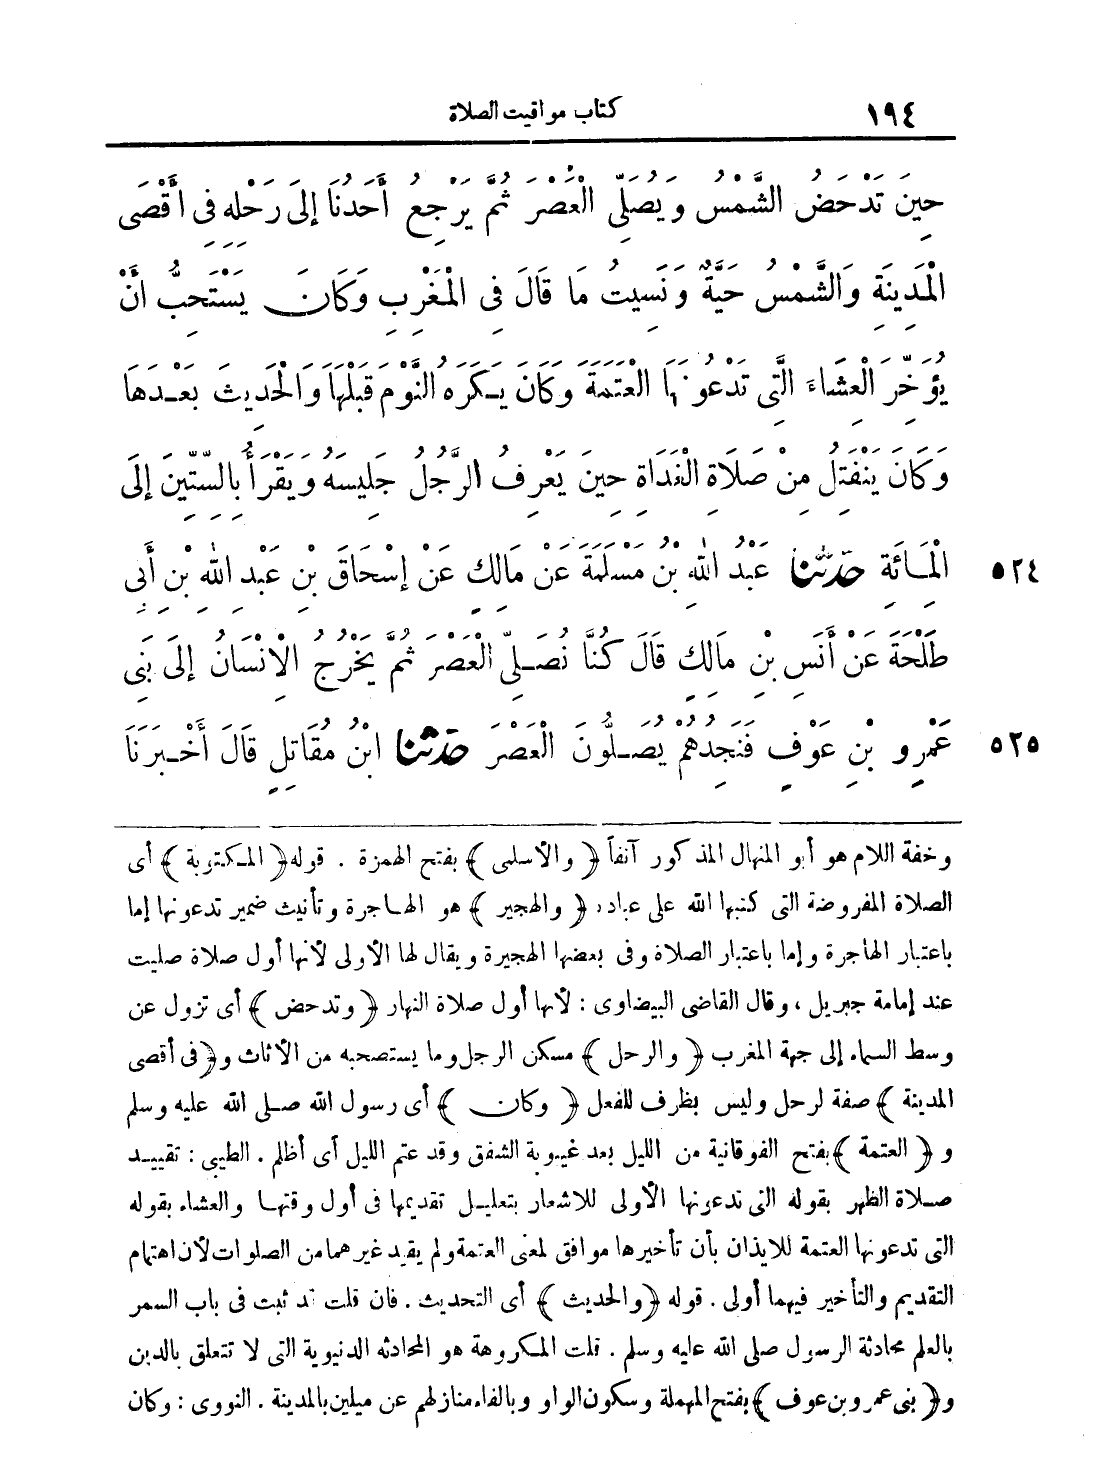 ١٩٤ كتاب مواقيت الصلاة
حِينَ تَدْحَضُ الشَّمْسُ وَيُصَلِّي الْعَصْرَ ثُمَّ يَرْجِعُ أَحَدُنَا إِلَى رَحْلِهِ فِى أَقْصَى
الْمَدِينَةِ وَالشَّمْسُ حَيَّةٌ وَنَسِيتُ مَا قَالَ فِى الْمَغْرِبِ وَكَانَ يَسْتَحِبُّ أَنْ
يُؤَخِّرَ الْعِشَاءَ الَّتِى تَدْعُونَهَا الْعَتَمَةَ وَكَانَ يَكْرَهُ النَّوْمَ قَبْلَهَا وَالْحَدِيثَ بَعْدَهَا
وَكَانَ يَنْفَتِلُ مِنْ صَلَاةِ الْغَدَاةِ حِينَ يَعْرِفُ الرَّجُلُ جَلِيسَهُ وَيَقْرَأُ بِالسِّتِّينَ إِلَى
٥٢٤ الْمِائَةِ حَدَّثَنَا عَبْدُ اللهِ بْنُ مَسْلَمَةَ عَنْ مَالِكٍ عَنْ إِسْحَاقَ بْنِ عَبْدِ اللهِ بْنِ أَبِى
طَلْحَةَ عَنْ أَنَسِ بْنِ مَالِكٍ قَالَ كُنَّا نُصَلِّى الْعَصْرَ ثُمَّ يَخْرُجُ الْإِنْسَانُ إِلَى بَنِى
٥٢٥ عَمْرِو بْنِ عَوْفٍ فَنَجِدُهُمْ يُصَلُّونَ الْعَصْرَ حَدَّثَنَا ابْنُ مُقَاتِلٍ قَالَ أَخْبَرَنَا
وخفة اللام هو أبو المنهال المذكور آنفاً ﴿ والأسلمى ﴾ بفتح الهمزة . قوله ﴿ المكتوبة ﴾ أى
الصلاة المفروضة التى كتبها الله على عباده ﴿ والهجير ﴾ هو الهاجرة وتأنيث ضمير تدعونها إما
باعتبار الهاجرة وإما باعتبار الصلاة وفى بعضها الهجيرة ويقال لها الأولى لأنها أول صلاة صليت
عند إمامة جبريل ، وقال القاضى البيضاوى : لأنها أول صلاة النهار ﴿ وتدحض ﴾ أى تزول عن
وسط السماء إلى جهة المغرب ﴿ والرحل ﴾ مسكن الرجل وما يستصحبه من الأثاث و﴿ فى أقصى
المدينة ﴾ صفة لرحل وليس بظرف للفعل ﴿ وكان ﴾ أى رسول الله صلى الله عليه وسلم
و ﴿ العتمة ﴾ بفتح الفوقانية من الليل بعد غيبوبة الشفق وقد عتم الليل أى أظلم . الطيبى : تقييد
صلاة الظهر بقوله التى تدعونها الأولى للاشعار بتعليل تقديمها فى أول وقتها والعشاء بقوله
التى تدعونها العتمة للايذان بأن تأخيرها موافق لمعنى العتمة ولم يقيد غيرهما من الصلوات لأن اهتمام
التقديم والتأخير فيهما أولى . قوله ﴿ والحديث ﴾ أى التحديث . فان قلت قد ثبت فى باب السمر
بالعلم محادثة الرسول صلى الله عليه وسلم . قلت المكروهة هو المحادثه الدنيوية التى لا تتعلق بالدين
و﴿ بنى عمرو بن عوف ﴾ بفتح المهملة وسكون الواو وبالفاء منازلهم عن ميلين بالمدينة . النووى : وكان